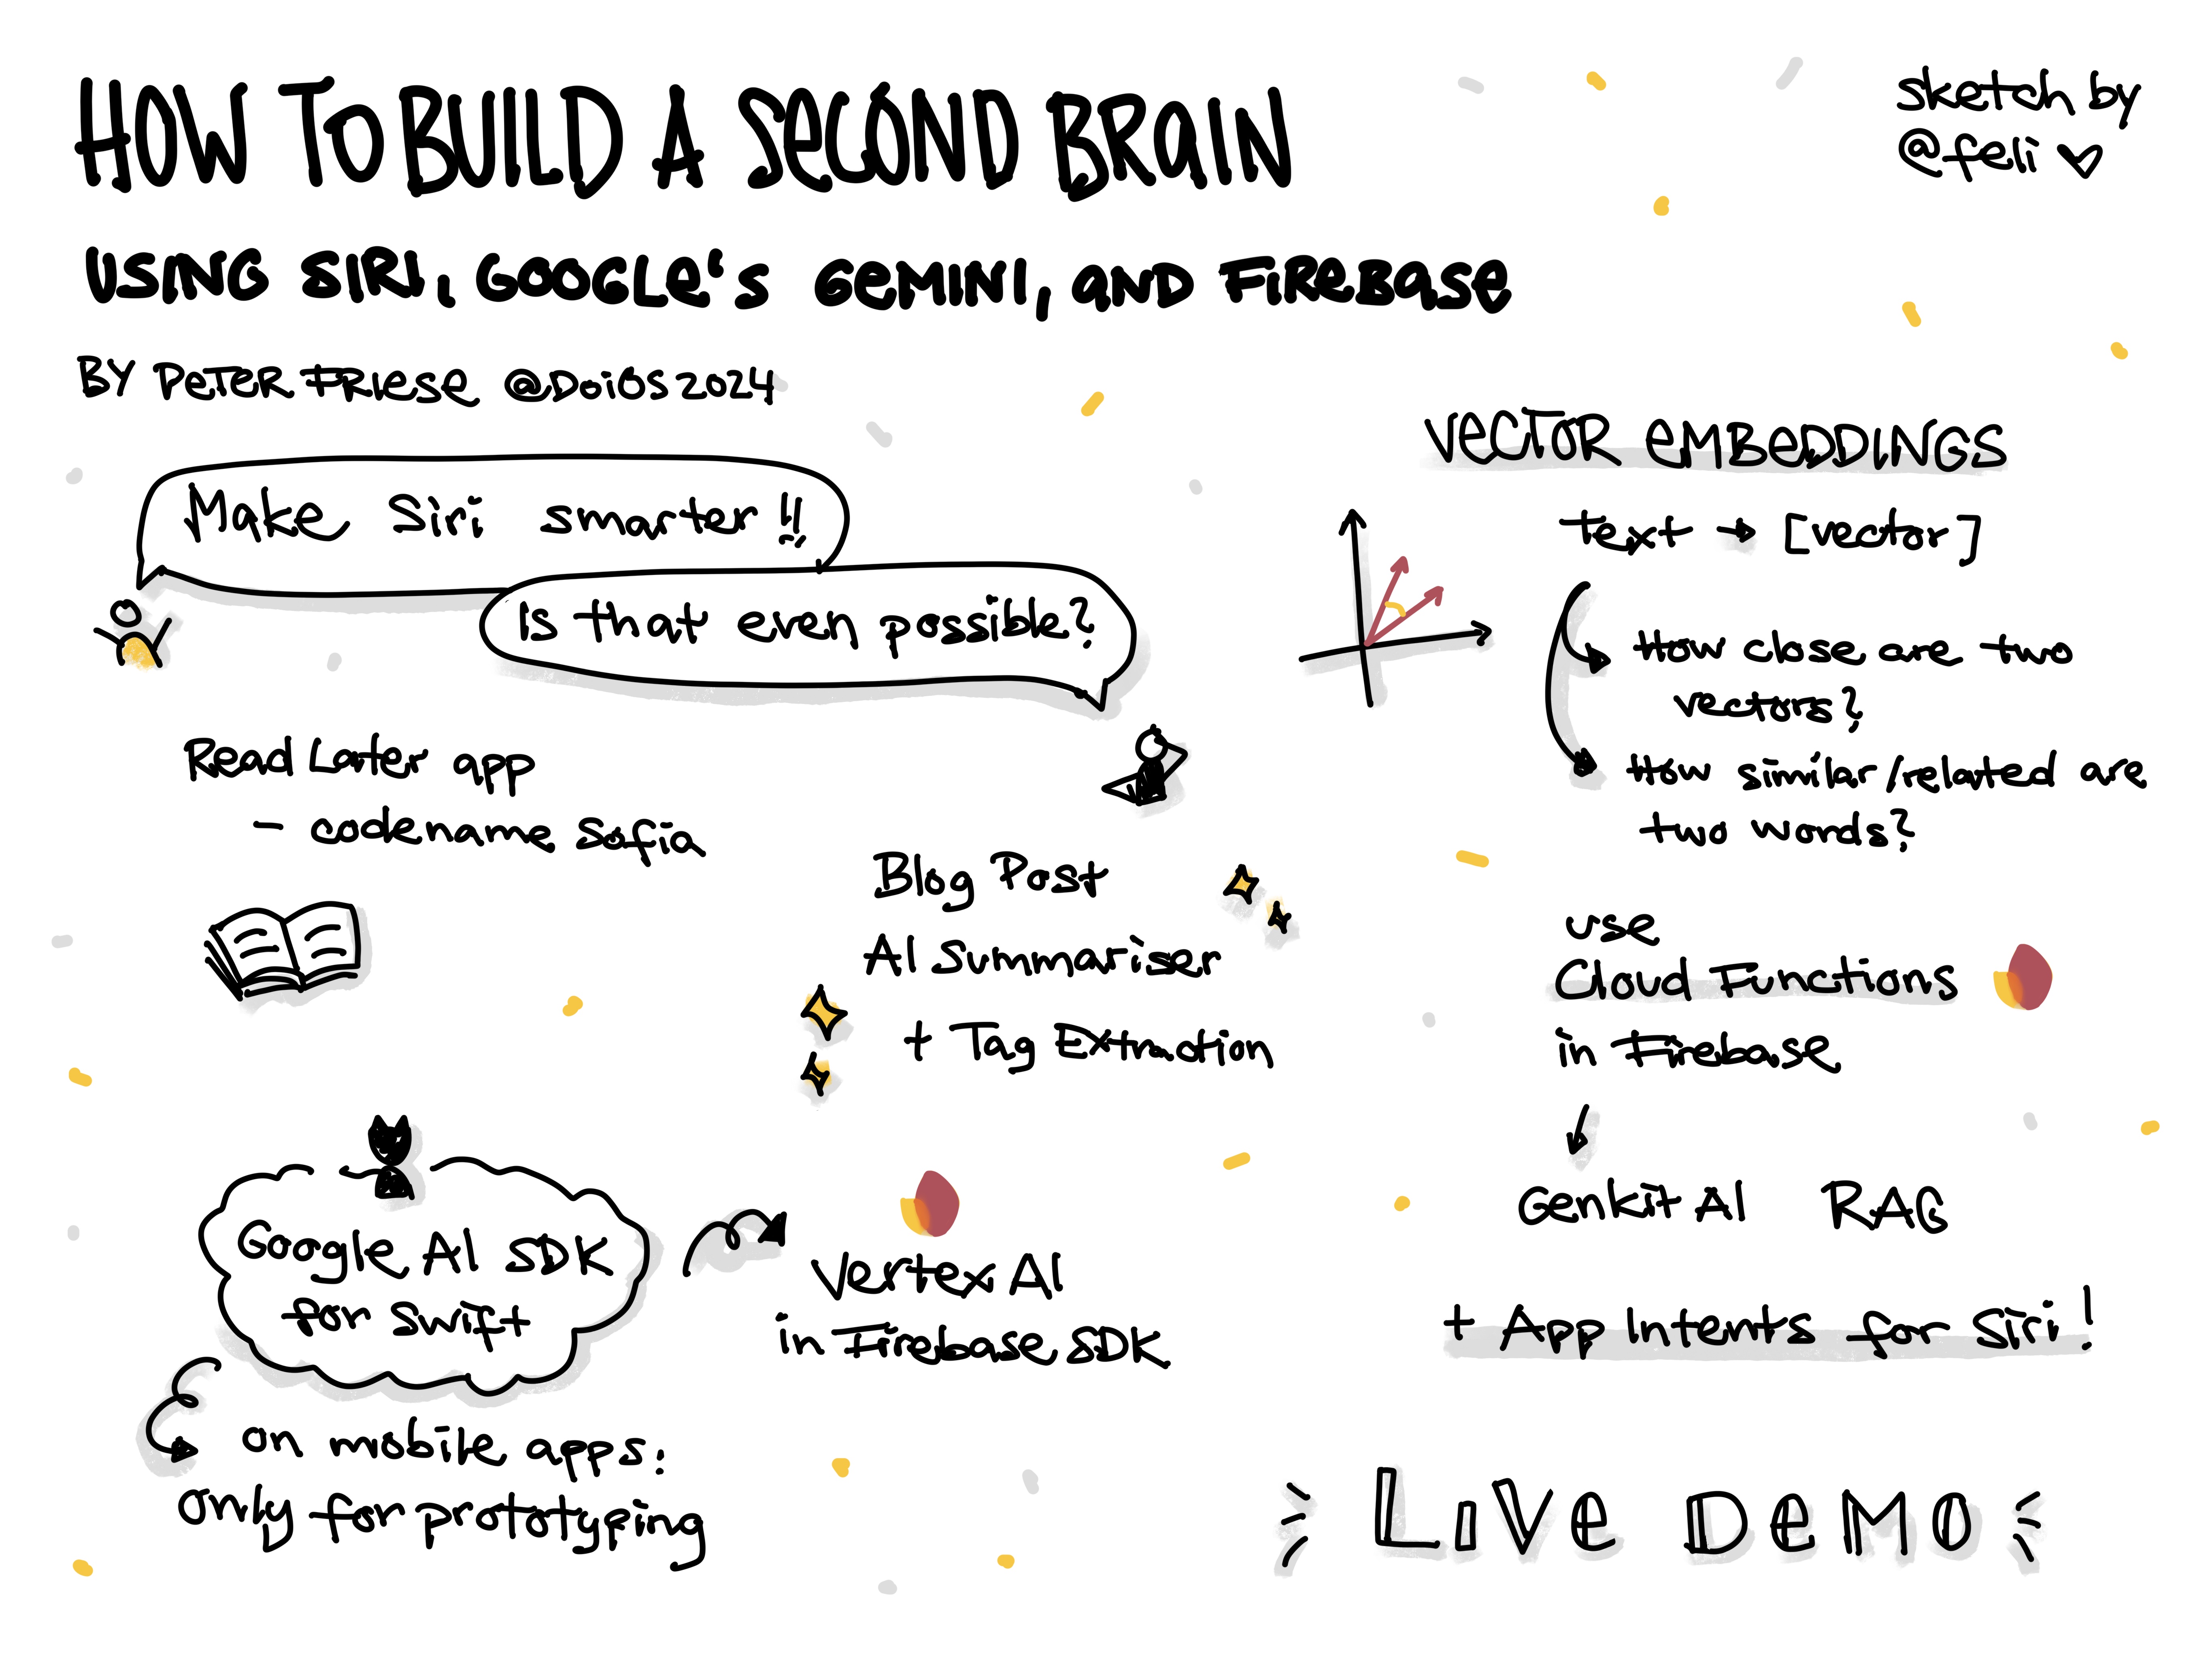 HOW TO BUILD A SECOND BRAIN
USING SIRI, GOOGLE'S GEMINI, AND FIREBASE
BY PETER FRIESE @DoiOS 2024
sketch by
@feli
Make Siri smarter!!
Is that even possible?
Read Later app
- codename Sofia
Blog Post
AI Summariser
+ Tag Extraction
Google AI SDK
for Swift
on mobile apps:
only for prototyping
Vertex AI
in Firebase SDK
VECTOR EMBEDDINGS
text → [vector]
How close are two
vectors?
How similar/related are
two words?
use
Cloud Functions
in Firebase
Genkit AI RAG
+ App Intents for Siri!
LIVE DEMO